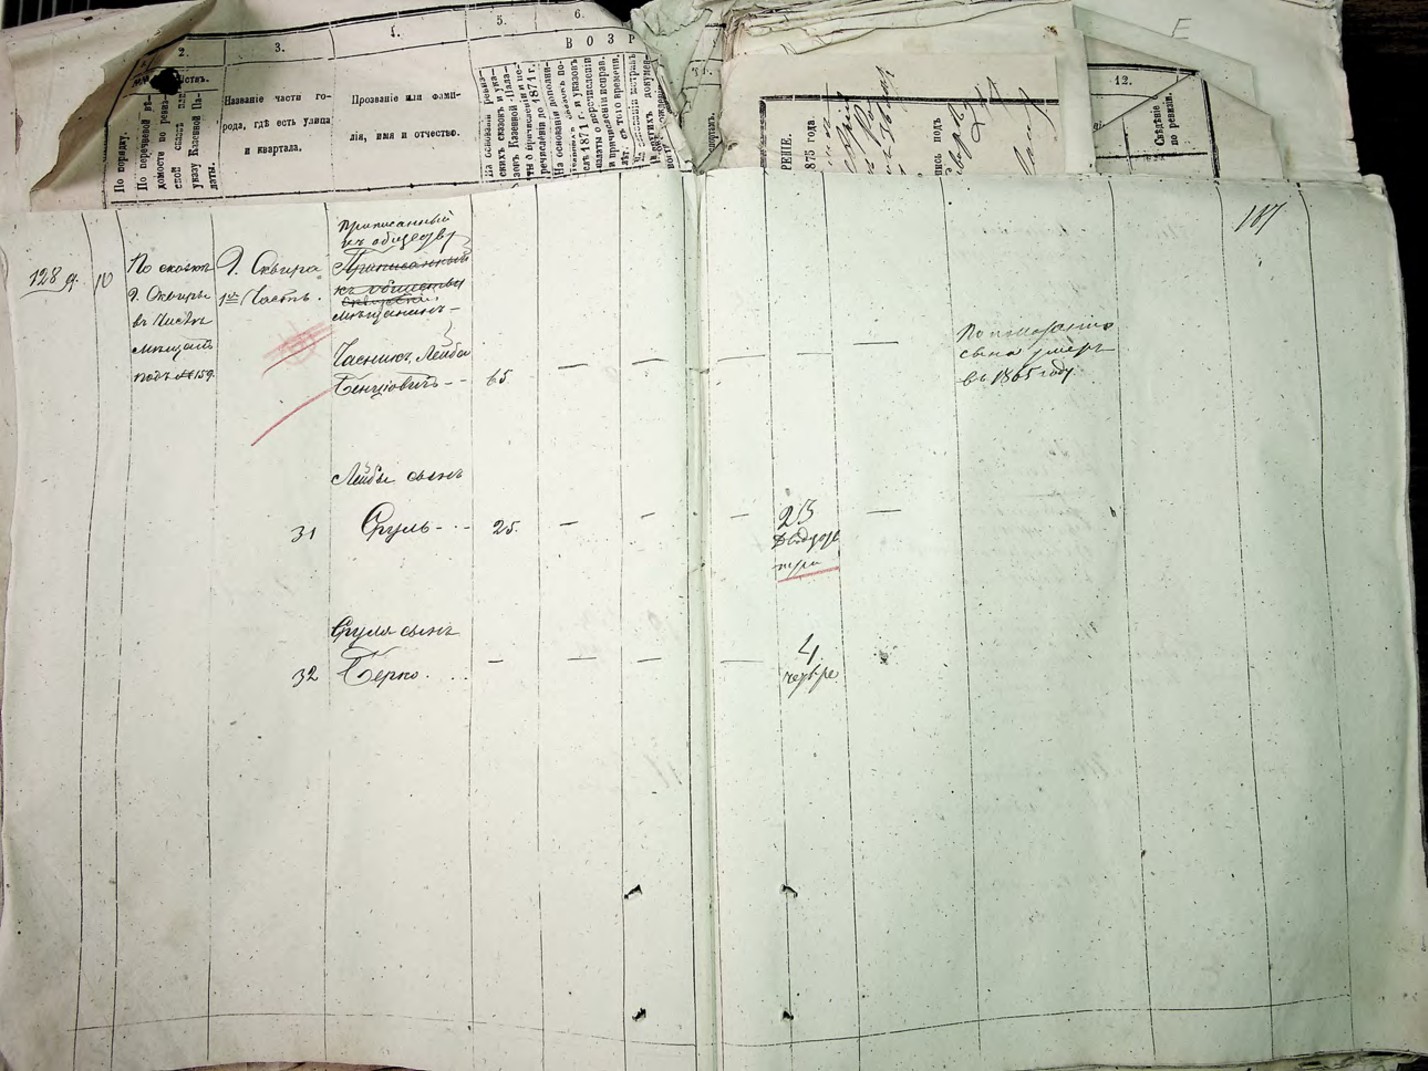 2.
3.
4.
5.
6.
ВОЗР
12.
По порядку.
По перечневой вѣ-
домости по ревиз-
ской сказкѣ или
указу Казенной Па-
латы.
Названіе части го-
рода, гдѣ есть улица
и квартала.
Прозваніе или фами-
лія, имя и отчество.
На основаніи ревиз-
скихъ сказокъ и ука-
зовъ Казенной Пала-
ты о причисленіи и пе-
речисленіи до 1871 г.
На основаніи дополни-
сдѣ 1871 г. и указовъ
палаты о перечисленіи
и причисленіи исправ.
съ того времени.
РЕНІЕ.
1875 года.
Свѣдѣніе
по ревизіи.
Е
187
128 д.
10
По сказкѣ
г. Сквиры
въ числѣ
мѣщанъ
подъ № 159.
Г. Сквира
1я Часть.
Приписанный
къ обществу
Приписанный
къ обществу
мѣщанинъ-
Часникъ, Лейба
Бенціоновичъ--
65
— — — — — —
По показанію
сына умеръ
въ 1865 году.
Лейбы сынъ
31 Сруль-·- 25. — — — 23 —
Двадцать
три
Сруля сынъ
32 Берко. . . — — — — 4
четыре